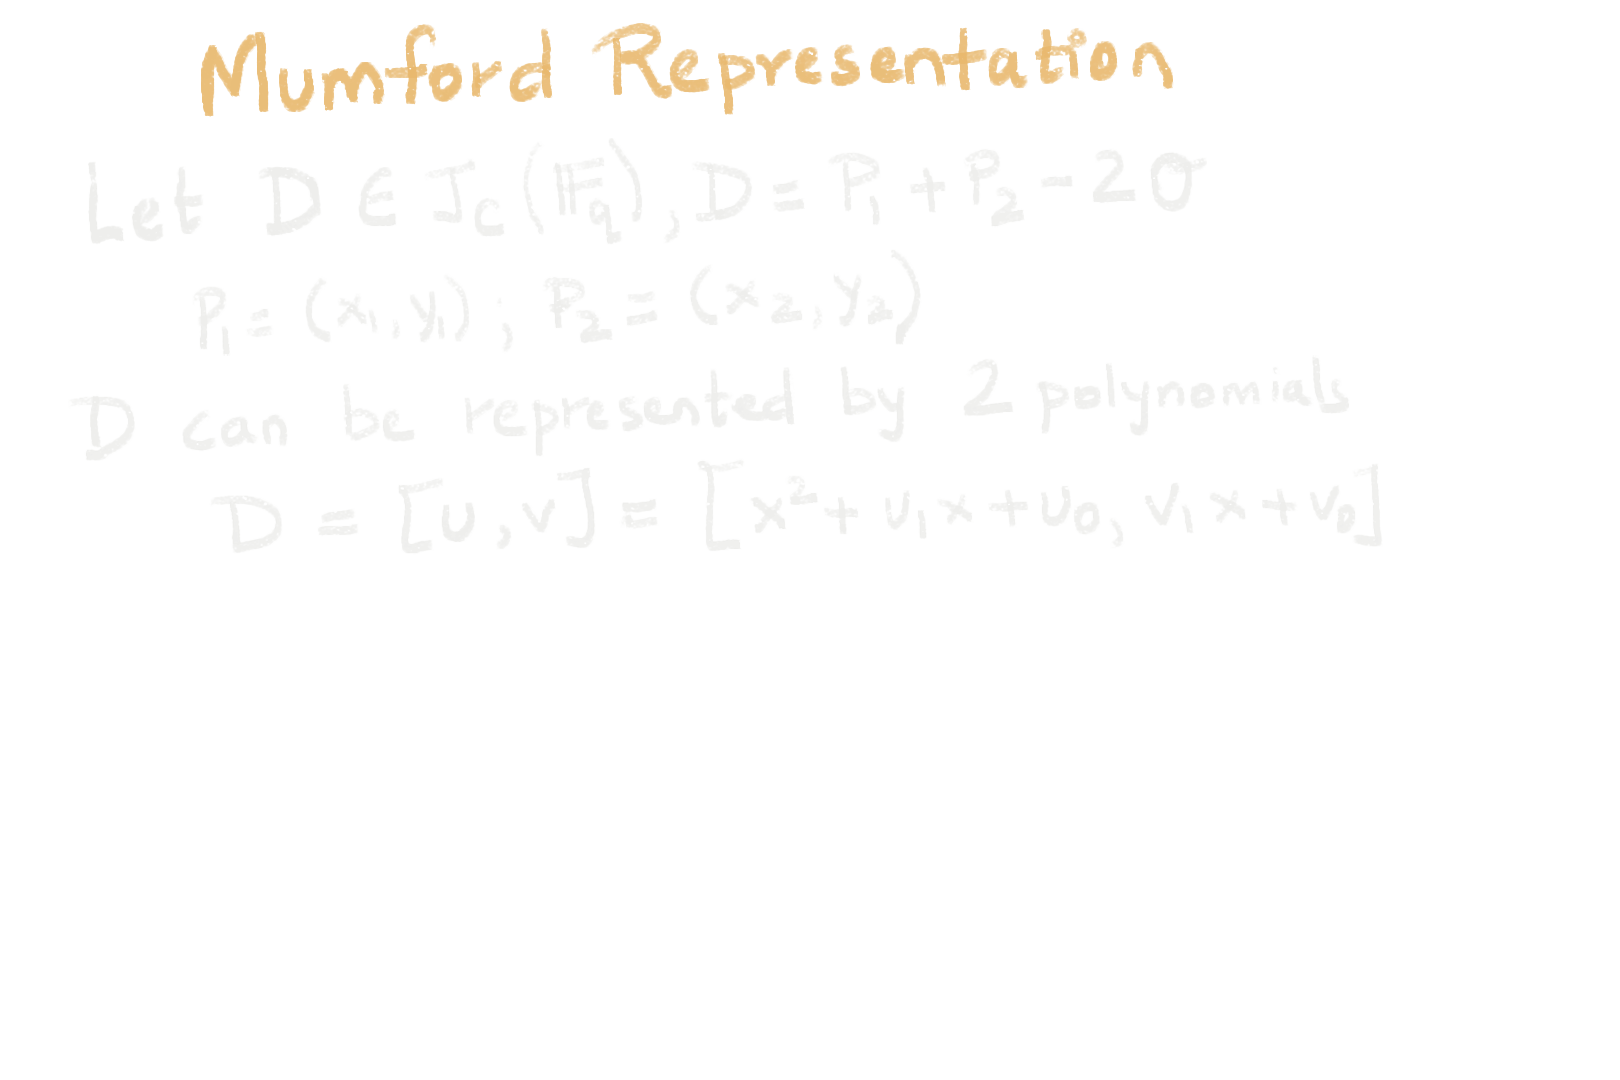 Mumford Representation
Let D ∈ J_C(𝔽_q), D = P₁ + P₂ - 2O
P₁ = (x₁, y₁) ; P₂ = (x₂, y₂)
D can be represented by 2 polynomials
D = [u, v] = [x² + u₁x + u₀, v₁x + v₀]